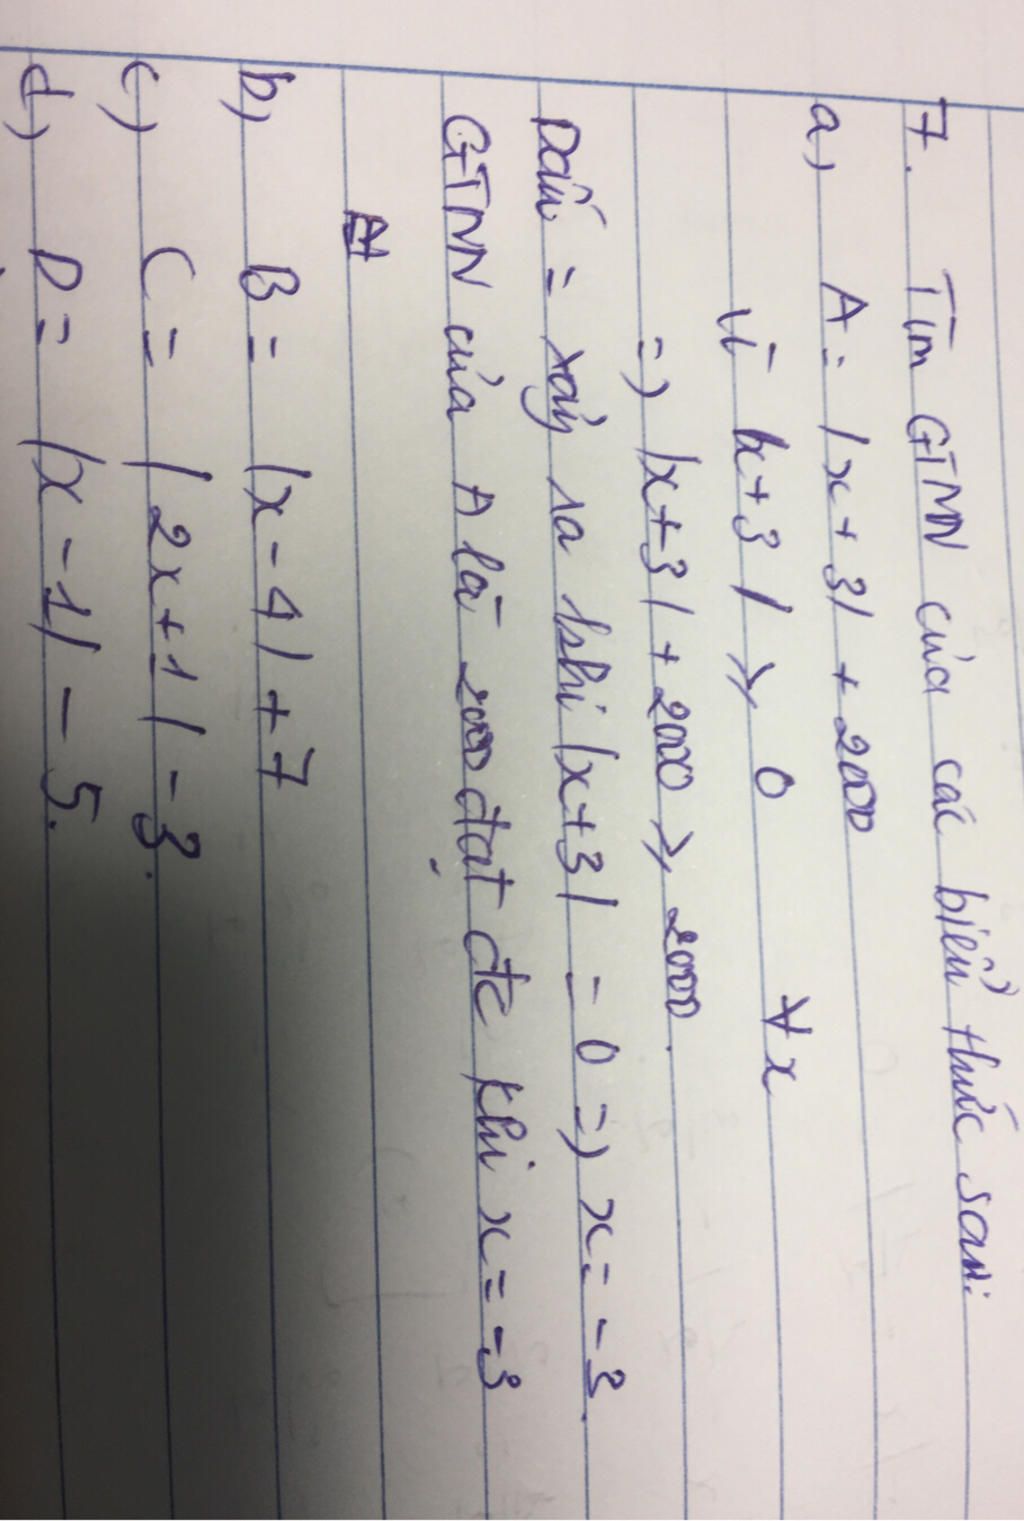 7. Tìm GTNN của các biểu thức sau:
a) A = |x + 3| + 2000
Vì |x + 3| ⩾ 0 ∀x
=) |x + 3| + 2000 ⩾ 2000.
Dấu = xảy ra khi |x + 3| = 0 =) x = -3.
GTNN của A là 2000 đạt đc khi x = -3
b) B = |x - 4| + 7
c) C = |2x + 1| - 3.
d) D = |x - 1| - 5.